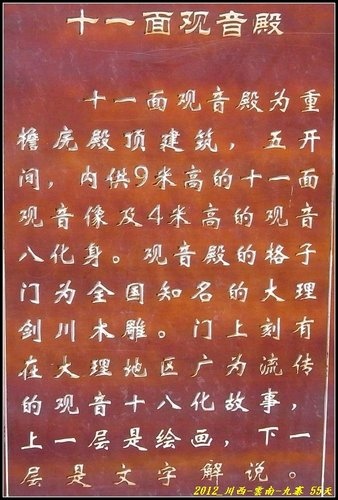 十一面观音殿
十一面观音殿为重
檐庑殿顶建筑，五开
间，内供9米高的十一面
观音像及4米高的观音
八化身。观音殿的格子
门为全国知名的大理
剑川木雕。门上刻有
在大理地区广为流传
的观音十八化故事，
上一层是绘画，下一
层是文字解说。
2012_川西-雲南-九寨 55天